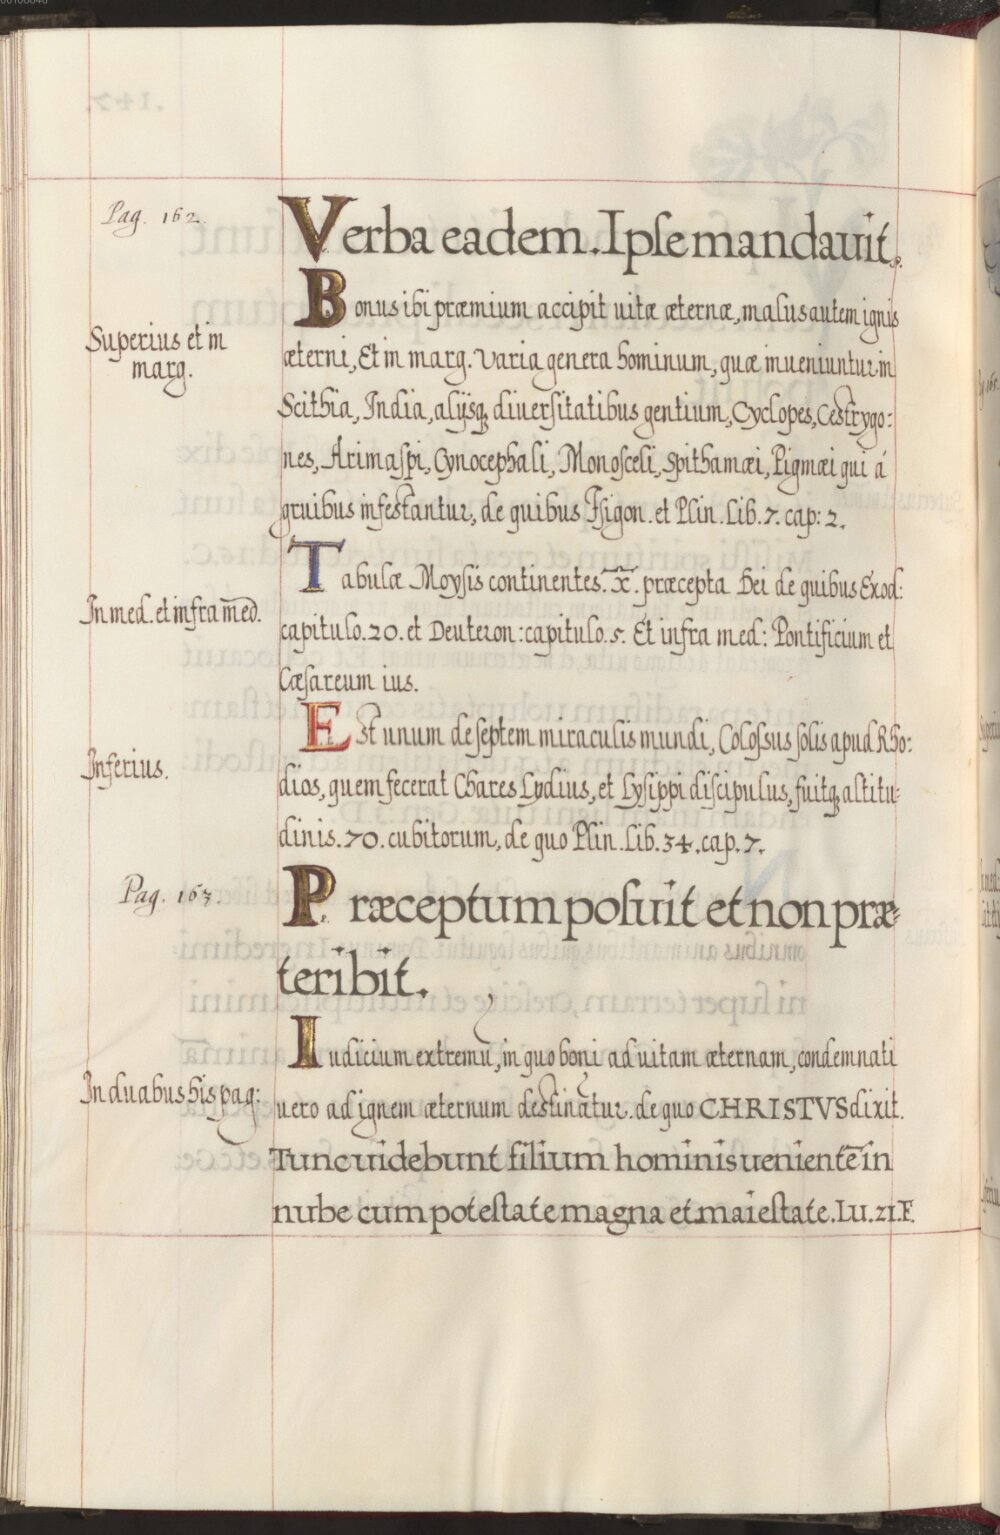 Pag. 162.
Verba eadem. Ipse mandauit.
Superius et in
marg.
Bonus ibi præmium accipit uitæ æternæ, malus autem ignis
æterni, Et in marg. varia genera hominum, quæ inueniuntur in
Scithia, India, alijsq; diuersitatibus gentium, Cyclopes, Cestrygo:
nes, Arimaspi, Cynocephali, Monosceli, Spithamæi, Pigmæi qui á
gruibus infestantur, de quibus Isigon. et Plin. Lib. 7. cap: 2.
In med. et infra med.
Tabulæ Moysis continentes .x̄. præcepta Dei de quibus Exod:
capitulo. 20. et Deuteron: capitulo. 5. Et infra med: Pontificium et
Cæsareum ius.
Inferius.
Est unum de septem miraculis mundi, Colossus solis apud Rho:
dios, quem fecerat Chares Lydius, et Lysippi discipulus, fuitq; altitu:
dinis. 70. cubitorum, de quo Plin. Lib. 34. cap. 7.
Pag. 163.
Præceptum posuit et non præ:
teribit.
In duabus his pag:
Iudicium extremū, in quo boni ad uitam æternam, condemnati
uero ad ignem æternum destinātur. de quo CHRISTVS dixit.
Tunc uidebunt filium hominis uenientē in
nube cum potestate magna et maiestate. Lu. 21. F.